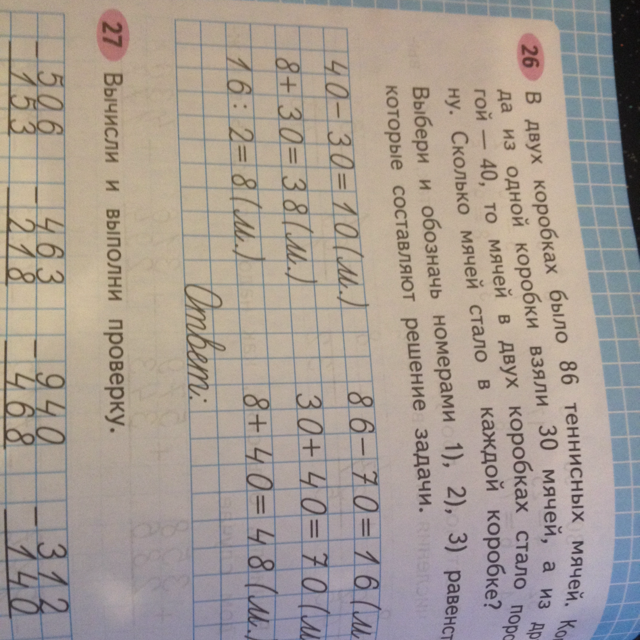 26 В двух коробках было 86 теннисных мячей.
да из одной коробки взяли 30 мячей, а из
гой — 40, то мячей в двух коробках стало
ну. Сколько мячей стало в каждой коробке?
Выбери и обозначь номерами 1), 2), 3)
которые составляют решение задачи.
40−30=10(м.) 86−70=16(м.
8+30=38(м.) 30+40=70(м.
16:2=8(м.) 8+40=48(м.
Ответ:
27 Вычисли и выполни проверку.
−506 −463 −940 −312
153 218 468 140